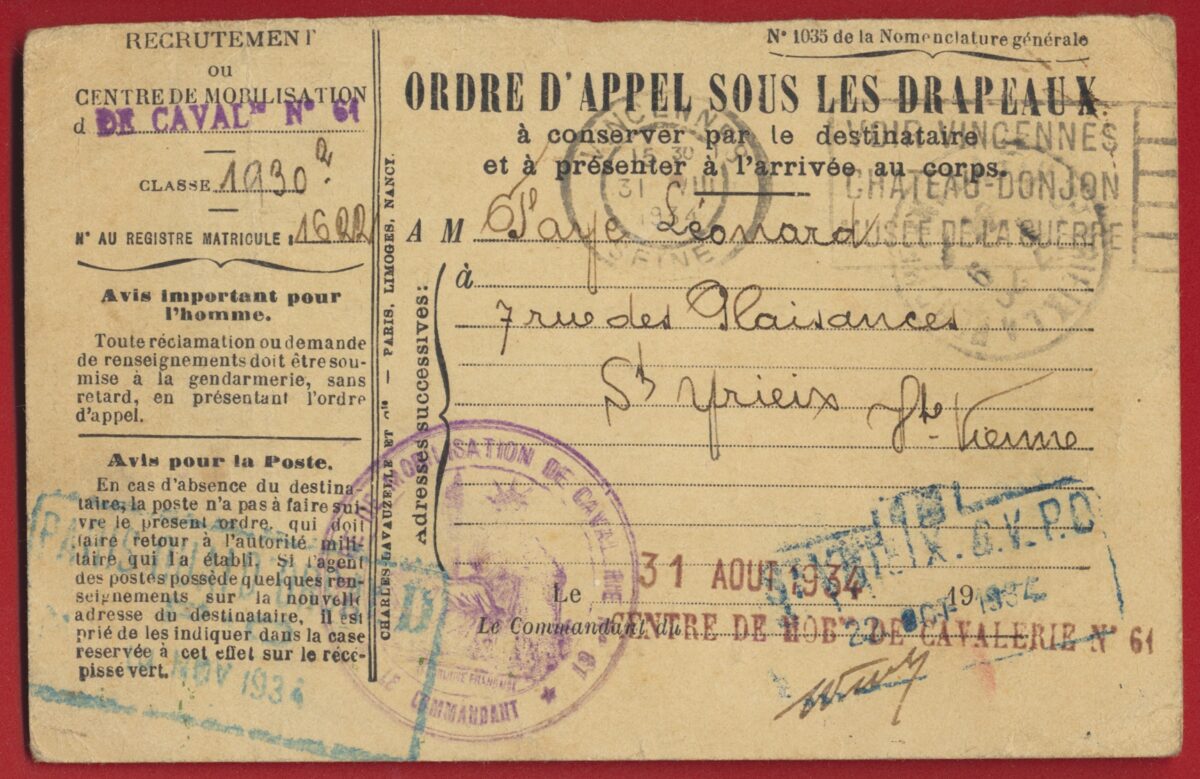 RECRUTEMENT
ou
CENTRE DE MOBILISATION
d DE CAVALie N° 61
CLASSE 1930
N° AU REGISTRE MATRICULE : 1622
Avis important pour
l'homme.
Toute réclamation ou demande
de renseignements doit être sou-
mise à la gendarmerie, sans
retard, en présentant l'ordre
d'appel.
Avis pour la Poste.
En cas d'absence du destina-
taire, la poste n'a pas à faire sui-
vre le présent ordre, qui doit
faire retour à l'autorité mili-
taire qui l'a établi. Si l'agent
des postes possède quelques ren-
seignements sur la nouvelle
adresse du destinataire, il est
prié de les indiquer dans la case
réservée à cet effet sur le récé-
pissé vert.
NOV 1934
CHARLES-LAVAUZELLE ET Cie — PARIS, LIMOGES, NANCY.
N° 1035 de la Nomenclature générale
ORDRE D'APPEL SOUS LES DRAPEAUX
à conserver par le destinataire
et à présenter à l'arrivée au corps.
VINCENNES
15 30
31 VIII
1934
SEINE
VOIR VINCENNES
CHATEAU-DONJON
MUSÉE DE LA GUERRE
A M Faye Léonard
à
7 rue des Plaisances
St Yrieix Hte Vienne
Adresses successives :
DE MOBILISATION DE CAVALERIE N° 61
LE COMMANDANT
Le 31 AOUT 1934 19
Le Commandant du CENTRE DE MOBon DE CAVALERIE N° 61
22 OCT 1934